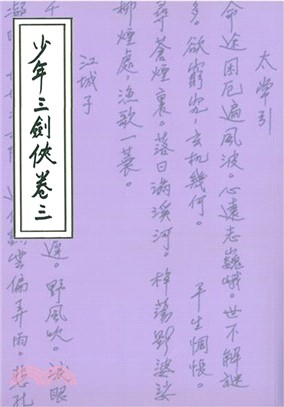 少年三劍俠卷三
太常引
命途困厄遍風波。心遠志巍峨。世不解謎
多。欲窮究。玄机幾何。 平生惆悵。
蒼煙裏。落日滿溪河。棹蕩影婆娑
柳煙處。漁歌一蓑。
江城子
千 遲。野風吹。淚眼
雲偏弄雨。悲孔